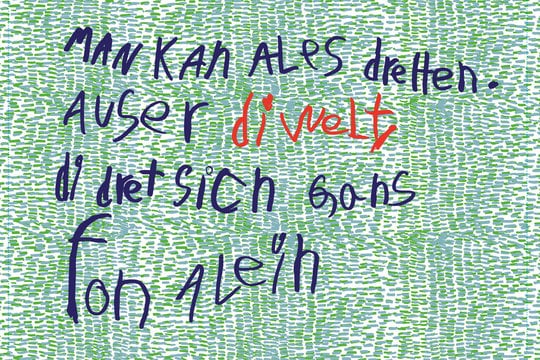 MAN KAN ALES dretten.
AUSER di welt,
di dret sich Gans
fon ALein